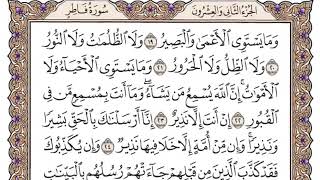 الجزء الثانى والعشرون سورة فاطر
وَمَا يَسْتَوِى ٱلْأَعْمَىٰ وَٱلْبَصِيرُ ١٩ وَلَا ٱلظُّلُمَٰتُ وَلَا ٱلنُّورُ
٢٠ وَلَا ٱلظِّلُّ وَلَا ٱلْحَرُورُ ٢١ وَمَا يَسْتَوِى ٱلْأَحْيَآءُ وَلَا
ٱلْأَمْوَٰتُ إِنَّ ٱللَّهَ يُسْمِعُ مَن يَشَآءُ وَمَآ أَنتَ بِمُسْمِعٍ مَّن فِى
ٱلْقُبُورِ ٢٢ إِنْ أَنتَ إِلَّا نَذِيرٌ ٢٣ إِنَّآ أَرْسَلْنَٰكَ بِٱلْحَقِّ بَشِيرًا
وَنَذِيرًا وَإِن مِّنْ أُمَّةٍ إِلَّا خَلَا فِيهَا نَذِيرٌ ٢٤ وَإِن يُكَذِّبُوكَ
فَقَدْ كَذَّبَ ٱلَّذِينَ مِن قَبْلِهِمْ جَآءَتْهُمْ رُسُلُهُم بِٱلْبَيِّنَٰتِ